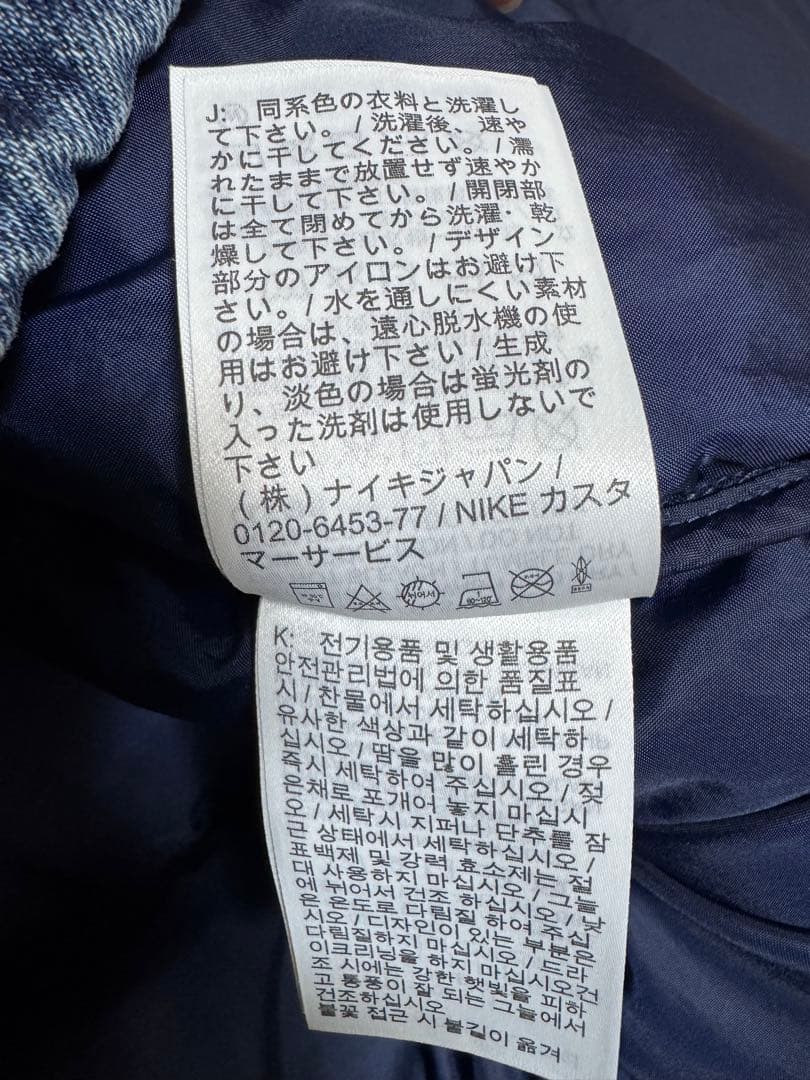 J: 同系色の衣料と洗濯し
て下さい。/ 洗濯後、速や
かに干してください。/ 濡
れたままで放置せず速やか
に干して下さい。/ 開閉部
は全て閉めてから洗濯・乾
燥して下さい。/ デザイン
部分のアイロンはお避け下
さい。/ 水を通しにくい素材
の場合は、遠心脱水機の使
用はお避け下さい / 生成
り、淡色の場合は蛍光剤の
入った洗剤は使用しないで
下さい
(株) ナイキジャパン /
0120-6453-77 / NIKE カスタ
マーサービス
뉘어서
80~120
K: 전기용품 및 생활용품
안전관리법에 의한 품질표
시 / 찬물에서 세탁하십시오 /
유사한 색상과 같이 세탁하
십시오 / 땀을 많이 흘린 경우
즉시 세탁하여 주십시오 / 젖
은채로 포개어 놓지 마십시
오 / 세탁시 지퍼나 단추를 잠
근 상태에서 세탁하십시오 /
표백제 및 강력 효소제는 절
대 사용하지 마십시오 / 그늘
에 뉘어서 건조 하십시오 / 낮
은 온도로 다림질 하여 주십
시오 / 디자인이 있는 부분은
다림질하지 마십시오 / 드라
이크리닝을 하지 마십시오 건
조 시에는 강한 햇빛을 피하
고 통풍이 잘 되는 그늘에서
건조하십시오
불꽃 접근 시 불길이 옮겨